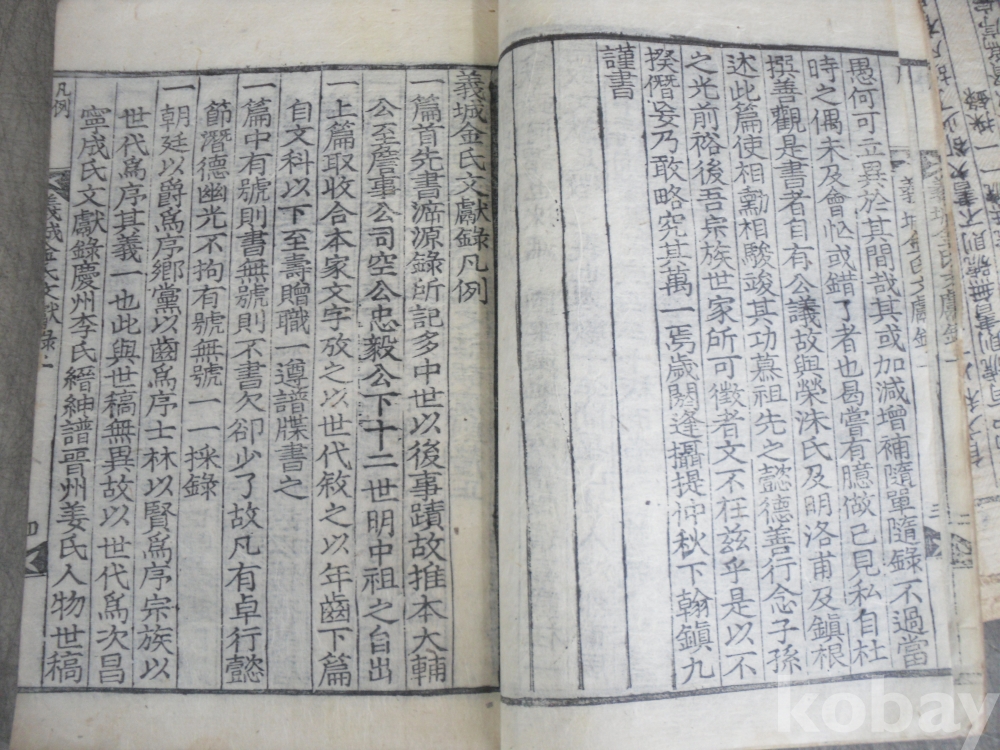 愚何可立異於其間哉其或加減增補隨單隨錄不過當
時之偶未及會忙或錯了者也曷嘗有臆做己見私自杜
撰善觀是書者自有公議故與榮洙氏及明洛甫及鎭根
述此篇使相勳相駿竣其功慕祖先之懿德善行念子孫
之光前裕後吾宗族世家所可徵者文不在玆乎是以不
揆僭妄乃敢略究其萬一焉歲閼逢攝提仲秋下翰鎭九
謹書
義城金氏文獻錄
三
義城金氏文獻錄凡例
一篇首先書源錄所記多中世以後事蹟故推本大輔
公至詹事公司空公忠毅公下十二世明中祖之自出
一上篇取收合本家文字攷之以世代敘之以年齒下篇
自文科以下至壽贈職一遵譜牒書之
一篇中有號則書無號則不書欠卻少了故凡有卓行懿
節潛德幽光不拘有號無號一一採錄
一朝廷以爵爲序鄉黨以齒爲序士林以賢爲序宗族以
世代爲序其義一也此與世稿無異故以世代爲次昌
寧成氏文獻錄慶州李氏縉紳譜晋州姜氏人物世稿
凡例
義城金氏文獻錄上
四
kobay